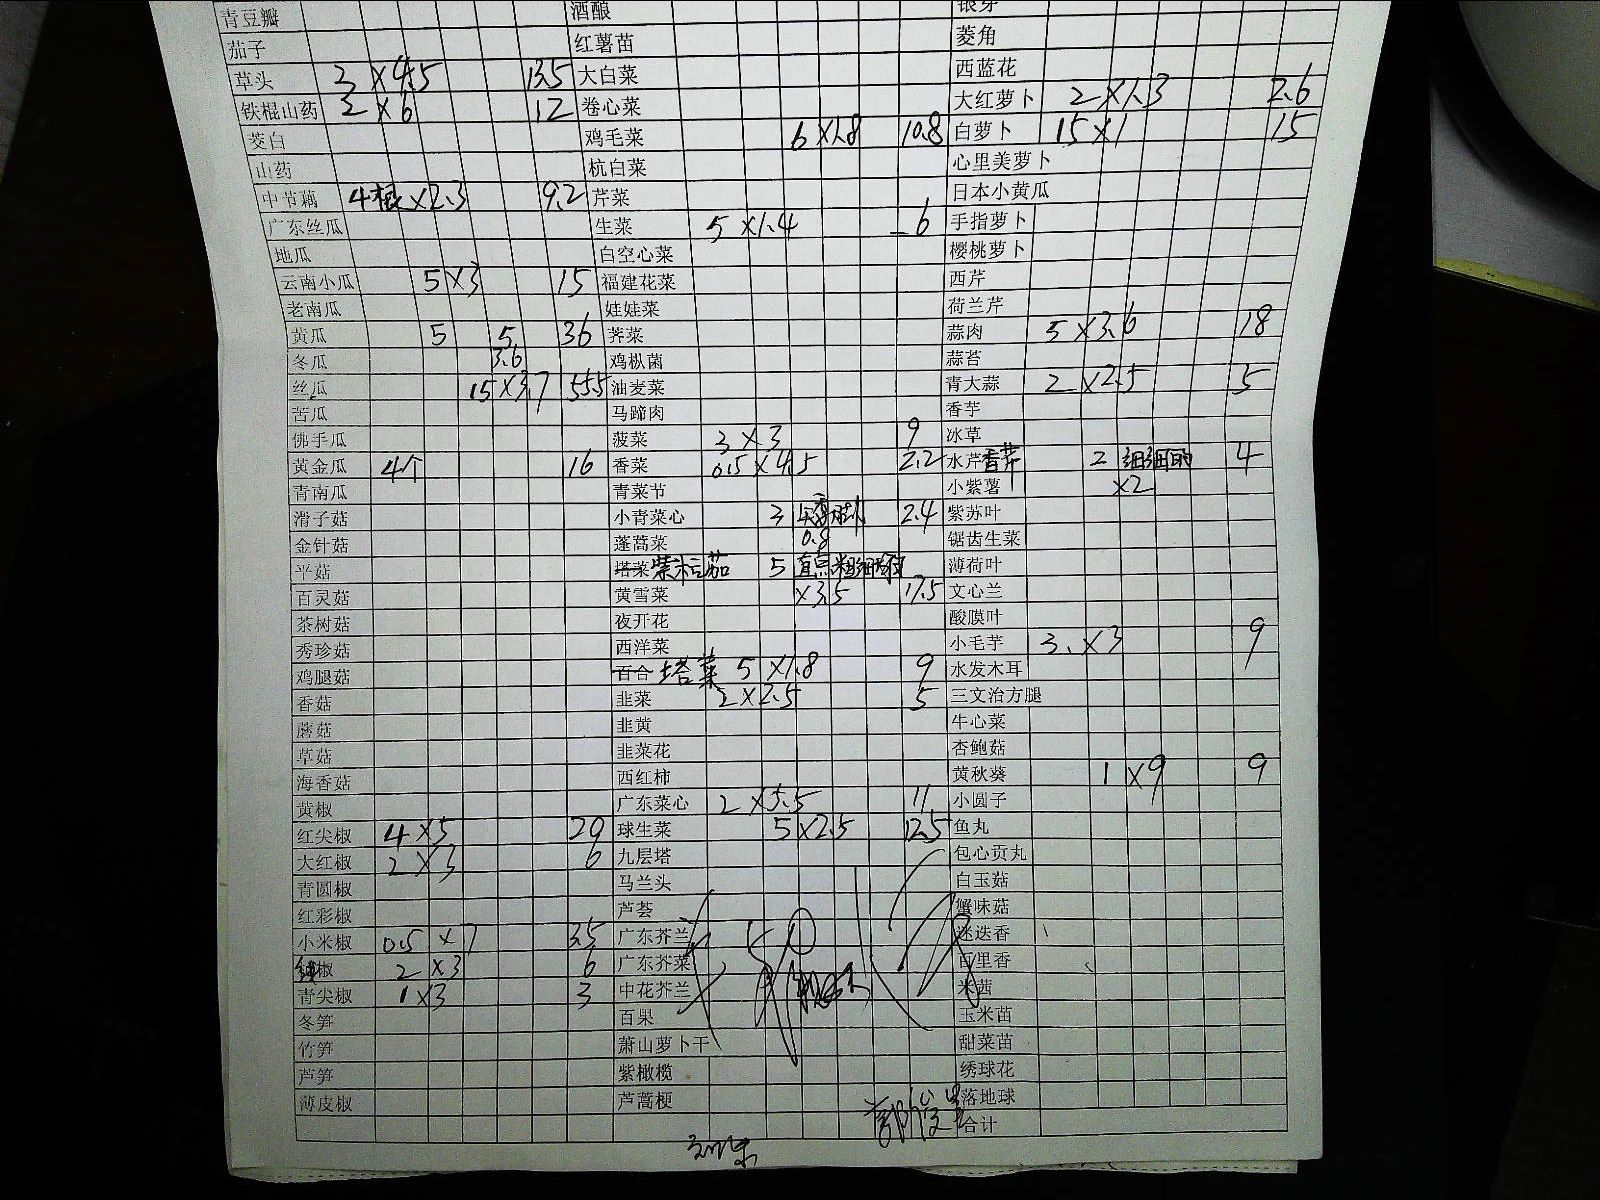 青豆瓣 酒酿 银芽
茄子 红薯苗 菱角
草头 3 ×4.5 13.5 大白菜 西蓝花
铁棍山药 2 ×6 12 卷心菜 大红萝卜 2 ×1.3 2.6
茭白 鸡毛菜 6 ×1.8 10.8 白萝卜 15 ×1 15
山药 杭白菜 心里美萝卜
中节藕 4根 ×2.3 9.2 芹菜 日本小黄瓜
广东丝瓜 生菜 5 ×1.4 6 手指萝卜
地瓜 白空心菜 樱桃萝卜
云南小瓜 5 ×3 15 福建花菜 西芹
老南瓜 娃娃菜 荷兰芹
黄瓜 5 5 36 荠菜 蒜肉 5 ×3.6 18
冬瓜 3.6 鸡枞菌 蒜苔
丝瓜 15 ×3.7 55.5 油麦菜 青大蒜 2 ×2.5 5
苦瓜 马蹄肉 香芋
佛手瓜 菠菜 3 ×3 9 冰草
黄金瓜 4个 16 香菜 0.5 ×4.5 2.2 水芹 香芹 2 细细的 4
青南瓜 青菜节 小紫薯 ×2
滑子菇 小青菜心 3 2.4 紫苏叶
金针菇 蓬蒿菜 0.8 锯齿生菜
平菇 塔菜 紫长茄 5 直点 粗细 薄荷叶
百灵菇 黄雪菜 ×3.5 17.5 文心兰
茶树菇 夜开花 酸膜叶
秀珍菇 西洋菜 小毛芋 3 ×3 9
鸡腿菇 百合 塔菜 5 ×1.8 9 水发木耳
香菇 韭菜 2 ×2.5 5 三文治方腿
蘑菇 韭黄 牛心菜
草菇 韭菜花 杏鲍菇
海香菇 西红柿 黄秋葵 1 ×9 9
黄椒 广东菜心 2 ×5.5 11 小圆子
红尖椒 4 ×5 20 球生菜 5 ×2.5 12.5 鱼丸
大红椒 2 ×3 6 九层塔 包心贡丸
青圆椒 马兰头 白玉菇
红彩椒 芦荟 蟹味菇
小米椒 0.5 ×7 3.5 广东芥兰 迷迭香
椒 2 ×3 6 广东芥菜 百里香
青尖椒 1 ×3 3 中花芥兰 米茜
冬笋 百果 玉米苗
竹笋 萧山萝卜干 甜菜苗
芦笋 紫橄榄 绣球花
薄皮椒 芦蒿梗 落地球
合计